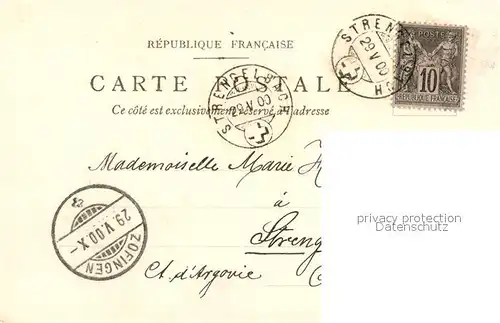 RÉPUBLIQUE FRANÇAISE
CARTE POSTALE
Ce côté est exclusivement réservé à l'adresse
STRENGELBACH
29 V 00
STRENG
29 V 00
POSTES
10
REPUBLIQUE FRANÇAISE
Mademoiselle Marie
à
Streng
Ct. d'Argovie
ZOFINGEN
29.V.00.X-
privacy protection
Datenschutz